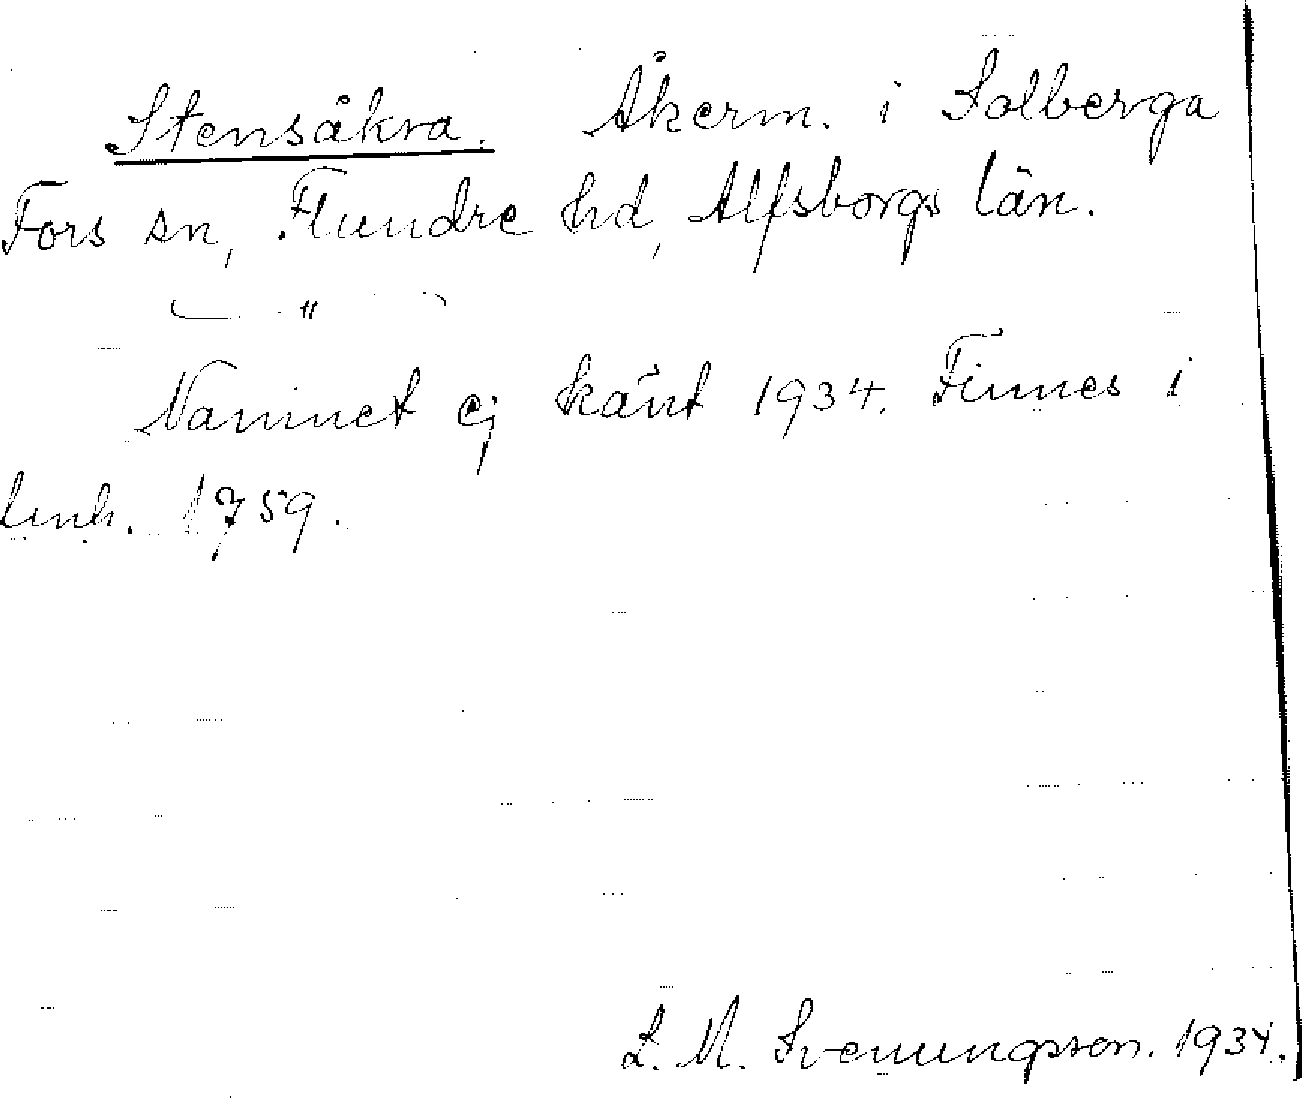 Stensåkra. Åkerm. i Solberga
Fors sn, Flundre hd, Älfsborgs län.
— " —
Namnet ej känt 1934. Finnes i
lmh. 1759.
L. M. Svenungson. 1934.